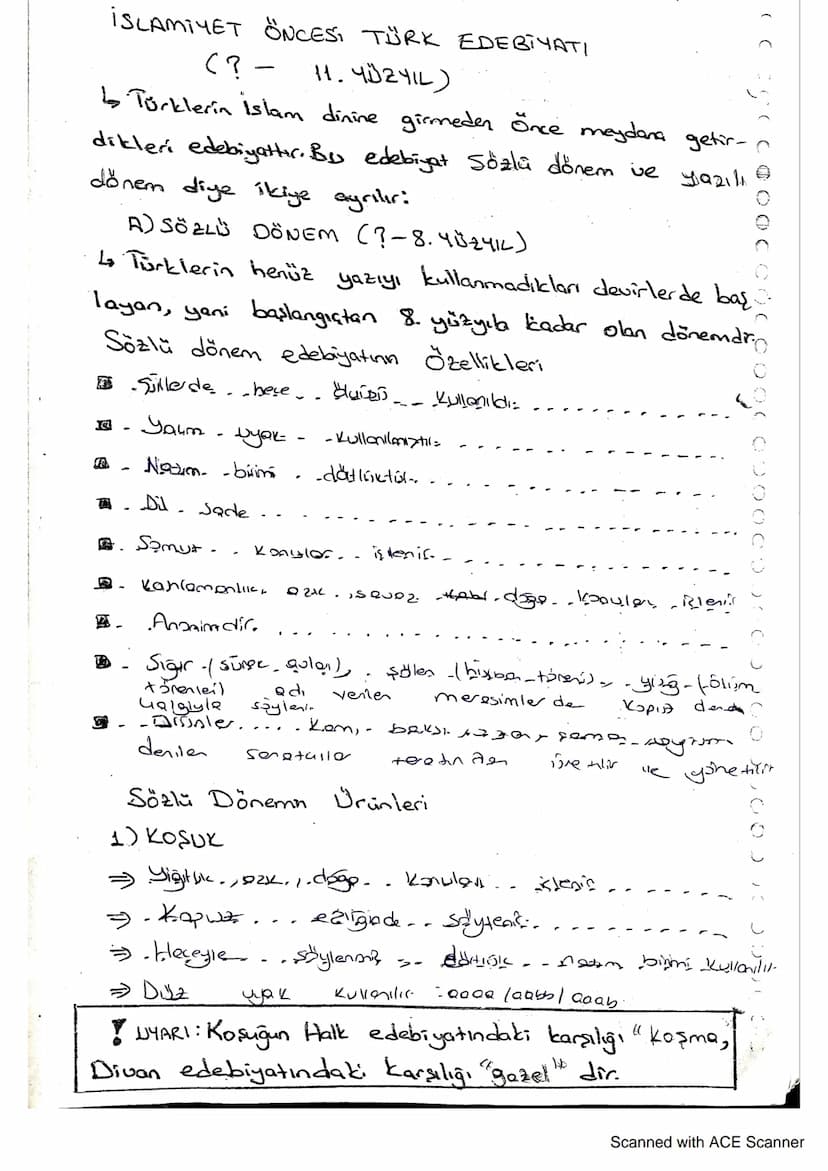 İSLAMİYET ÖNCESİ TÜRK EDEBİYATI
(? – 11. YÜZYIL)
↳ Türklerin İslam dinine girmeden önce meydana getir-
dikleri edebiyattır. Bu edebiyat sözlü dönem ve yazılı
dönem diye ikiye ayrılır:
A) SÖZLÜ DÖNEM (? – 8. YÜZYIL)
↳ Türklerin henüz yazıyı kullanmadıkları devirlerde baş
layan, yani başlangıçtan 8. yüzyıla kadar olan dönemdir.
Sözlü dönem edebiyatının Özellikleri
Şiirlerde hece ölçüsü kullanıldı.
Yarım uyak kullanılmıştır.
Nazım birimi dörtlüktür.
Dil sade
Somut konular işlenir.
Kahramanlık, aşk, savaş, doğa konuları işlenir
Anonimdir.
Sığır (sürek avları), şölen, yuğ (ölüm
törenleri) adı verilen merasimlerde kopuz denen
çalgıyla söylenir.
Dinsiler Kam, baksı, ozan, şaman, oyun
denilen sanatçılar tarafından ve yönetilir
Sözlü Dönemin Ürünleri
1) KOŞUK
⇒ Yiğitlik, aşk, doğa konuları işlenir
⇒ Kopuz eşliğinde söylenir.
⇒ Heceyle söylenmiş dörtlük nazım birimi kullanılır.
⇒ Düz uyak kullanılır: aaaa / aabb / aaab
! UYARI: Koşuğun Halk edebiyatındaki karşılığı "koşma,
Divan edebiyatındaki karşılığı "gazel" dir.
Scanned with ACE Scanner